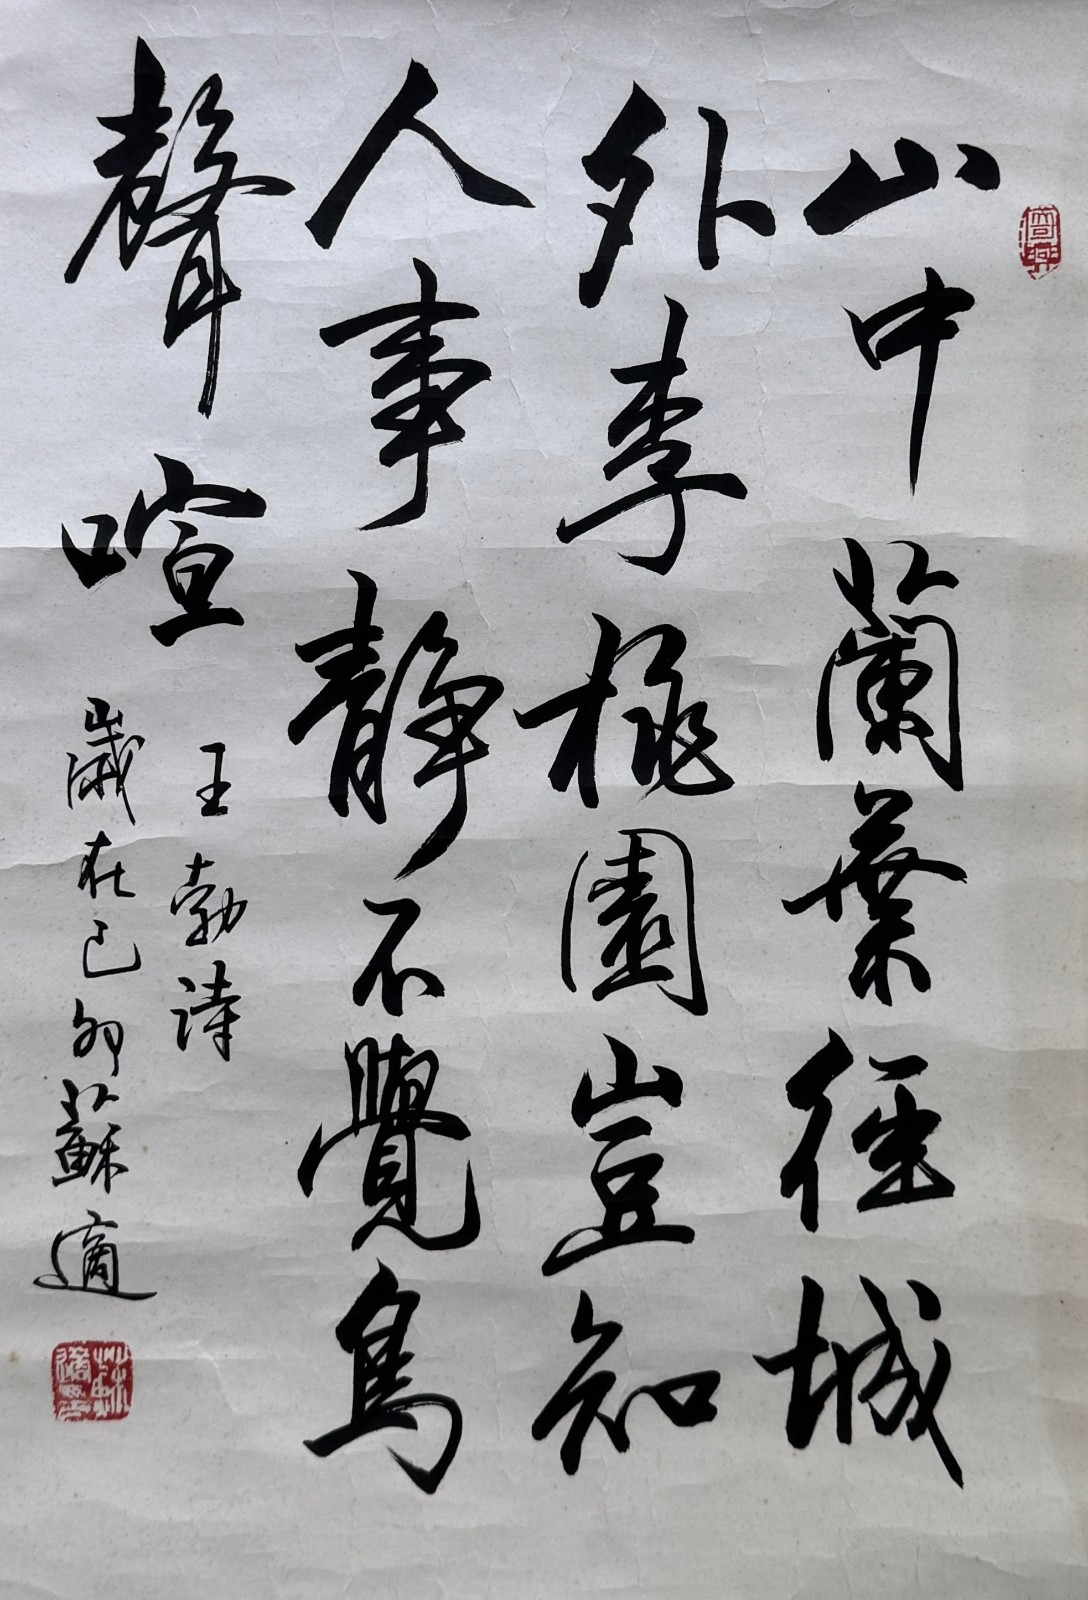 山中蘭葉徑城
外李桃園豈知
人事靜不覺鳥
聲喧
王勃詩
歲在己卯蘇適